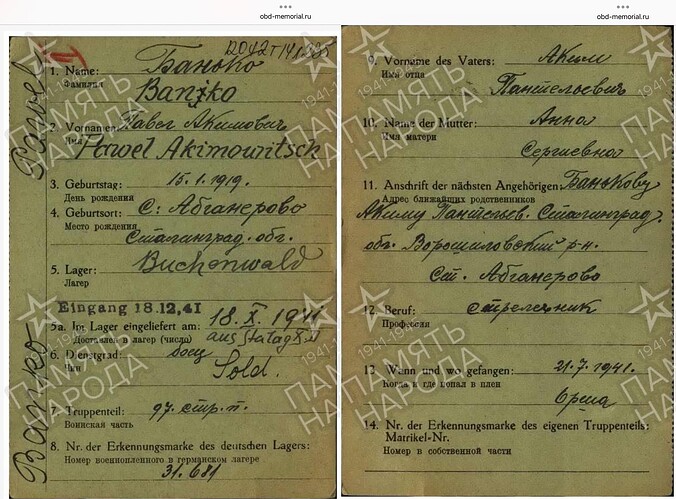 obd-memorial.ru
Pawel
Банько
1. Name:
Фамилия
Banko
2. Vorname: Павел Акимович
Имя
Pawel Akimowitsch
3. Geburtstag: 15.1.1919.
День рождения
4. Geburtsort: С. Абганерово
Место рождения
Сталинград. обл.
5. Lager: Buchenwald
Лагер
Eingang 18.12.41
5a. Im Lager eingeliefert am: 18.X.1941
Доставлен в лагер (число) aus Stalag
6. Dienstgrad: боец
Чин
Sold.
7. Truppenteil: 97. стр. п.
Воинская часть
8. Nr. der Erkennungsmarke des deutschen Lagers:
Номер военнопленного в германском лагере
31.681
Banko
obd-memorial.ru
9. Vorname des Vaters: Аким
Имя отца
Пантельевич
10. Name der Mutter: Анна
Имя матери
Сергиевна
11. Anschrift der nächsten Angehörigen: Банькову
Адрес ближайших родственников
Акиму Пантельев. Сталинград.
об. Ворошиловский р-н.
Ст. Абганерово
12. Beruf: стрелочник
Профессия
13. Wann und wo gefangen: 21.7.1941.
Когда и где попал в плен
Орша
14. Nr. der Erkennungsmarke des eigenen Truppenteils:
Matrikel-Nr.
Номер в собственной части
1941-1945
ПАМЯТЬ
НАРОДА